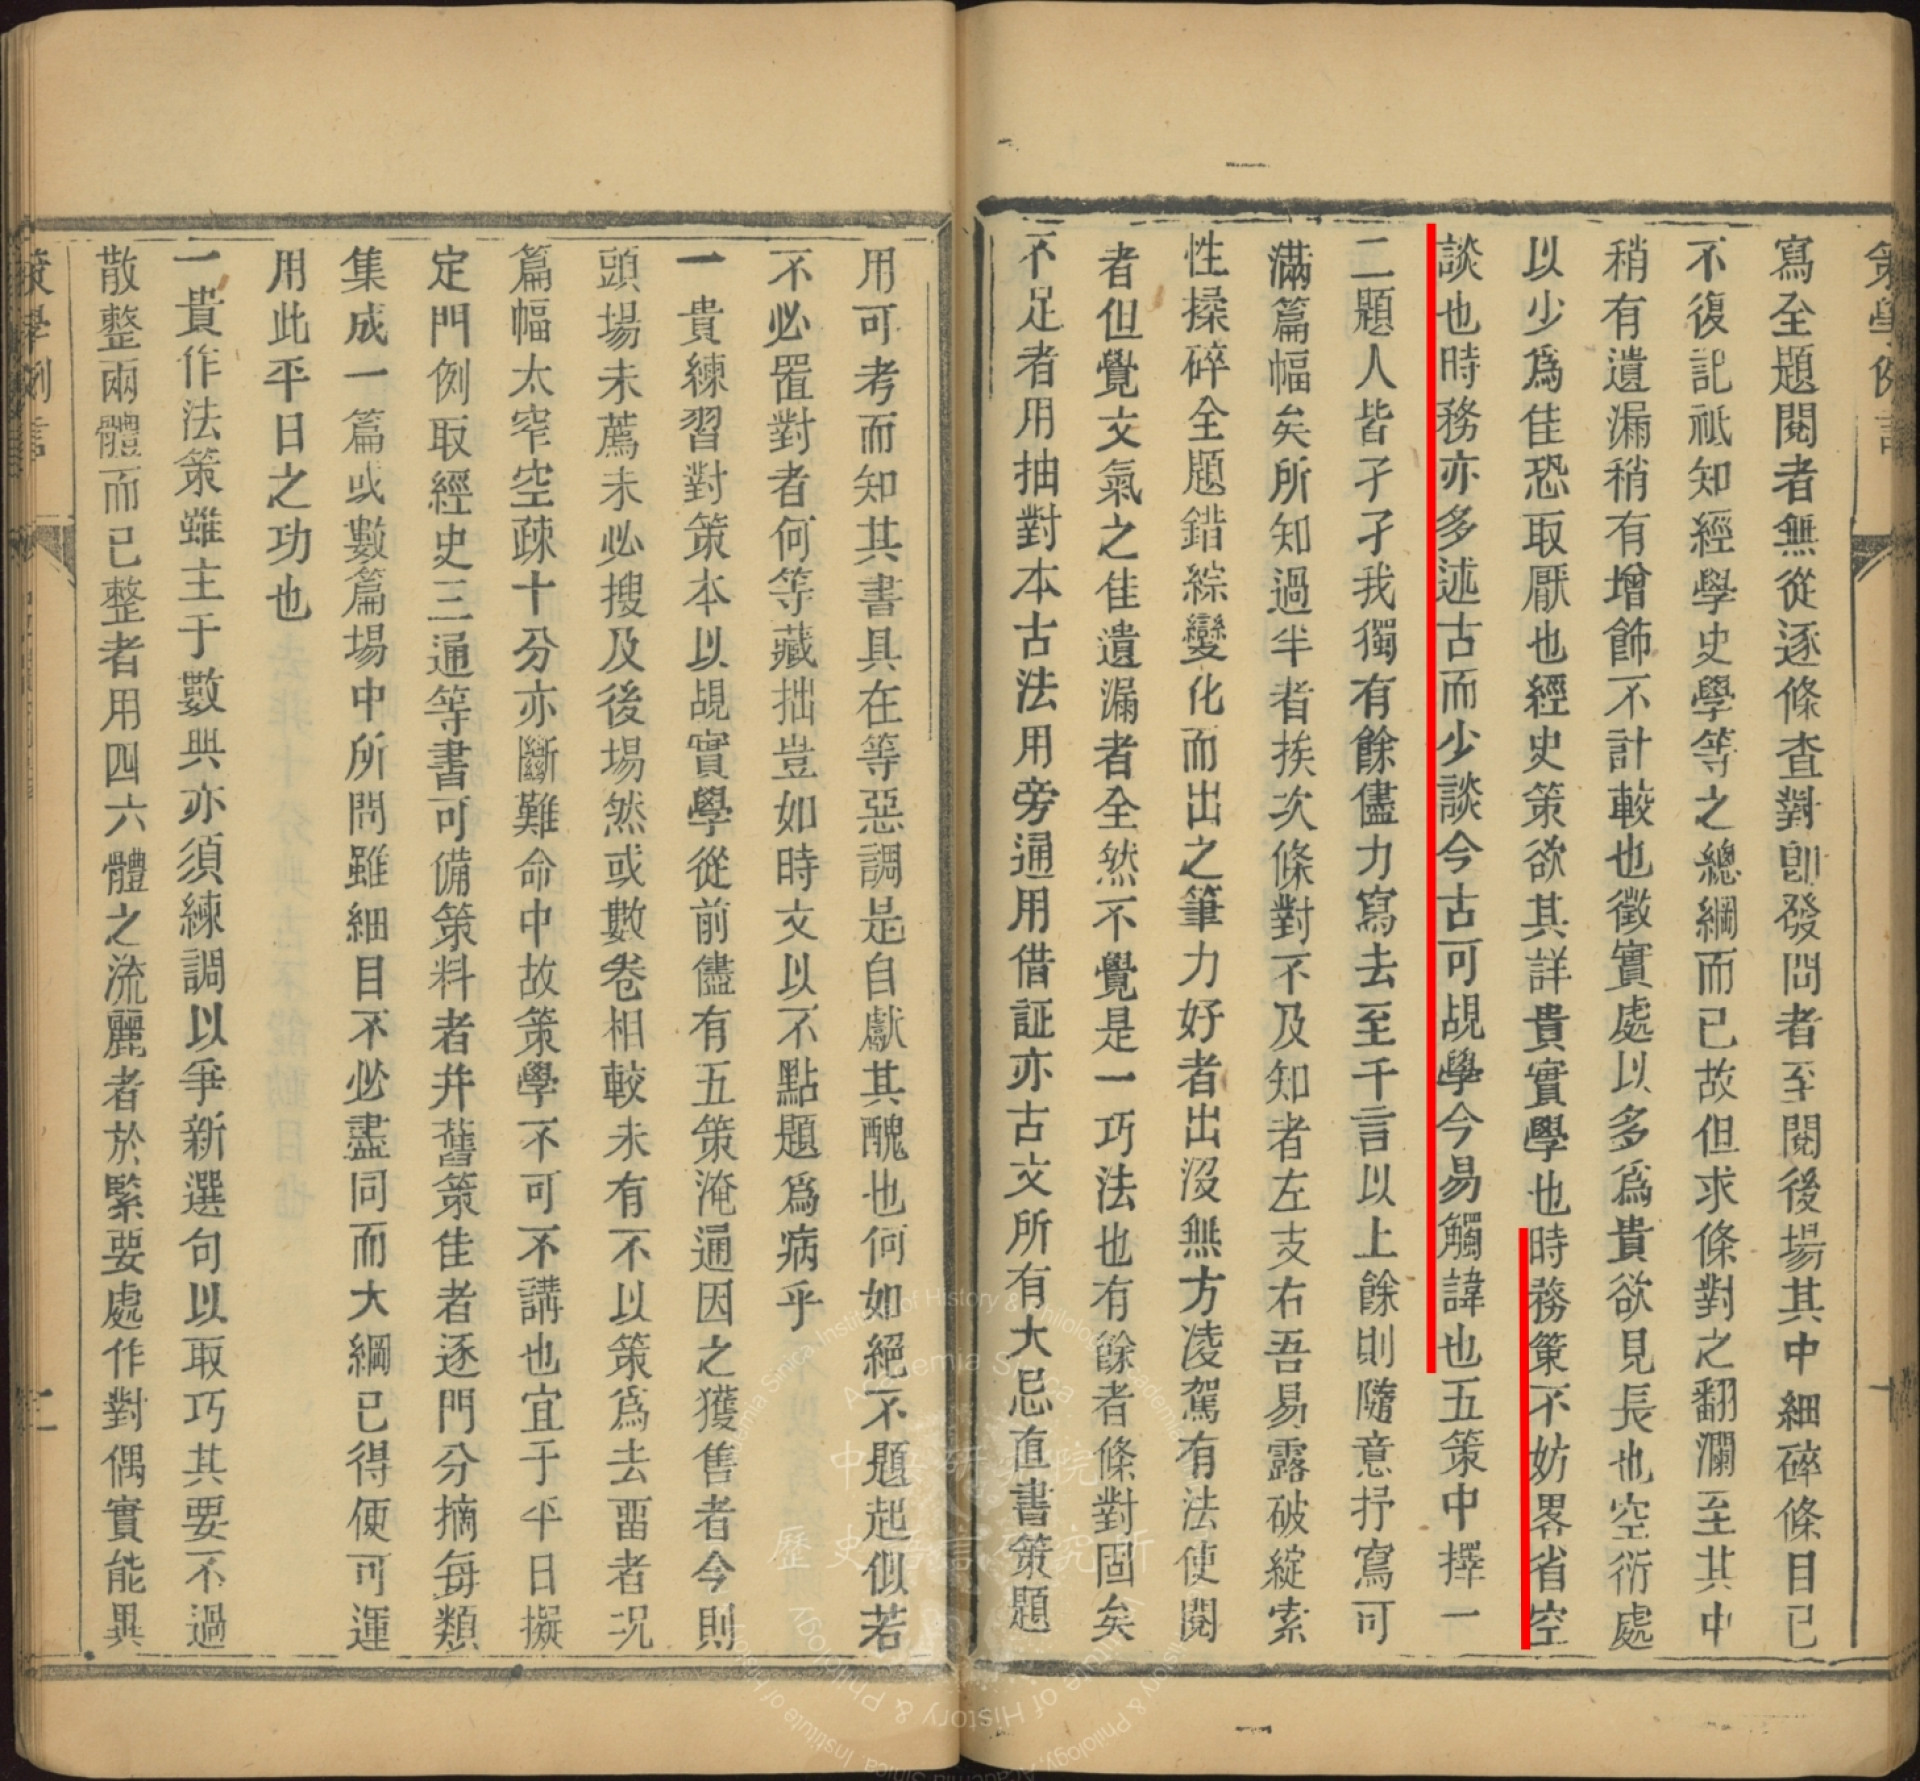 策學例言
寫全題閱者無從逐條查對卽發問者至閱後場其中細碎條目已
不復記祇知經學史學等之總綱而已故但求條對之翻瀾至其中
稍有遺漏稍有增飾不計較也徵實處以多爲貴欲見長也空衍處
以少爲佳恐取厭也經史策欲其詳貴實學也時務策不妨畧省空
談也時務亦多述古而少談今古可覘學今易觸諱也五策中擇一
二題人皆孑孑我獨有餘儘力寫去至千言以上餘則隨意抒寫可
滿篇幅矣所知過半者挨次條對不及知者左支右吾易露破綻索
性揉碎全題錯綜變化而出之筆力好者出沒無方凌駕有法使閱
者但覺文氣之佳遺漏者全然不覺是一巧法也有餘者條對固矣
不足者用抽對本古法用旁通用借証亦古文所有大忌直書策題
用可考而知其書具在等惡調是自獻其醜也何如絕不題起似若
不必置對者何等藏拙豈如時文以不點題爲病乎
一貴練習對策本以覘實學從前儘有五策淹通因之獲售者今則
頭場未薦未必搜及後場然或數卷相較未有不以策爲去畱者況
篇幅太窄空疎十分亦斷難命中故策學不可不講也宜于平日擬
定門例取經史三通等書可備策料者幷舊策佳者逐門分摘每類
集成一篇或數篇場中所問雖細目不必盡同而大綱已得便可運
用此平日之功也
一貴作法策雖主于數典亦須練調以爭新選句以取巧其要不過
散整兩體而已整者用四六體之流麗者於緊要處作對偶實能異
策學例言
中央研究院
歷史語言研究所
Academia Sinica
Institute of History & Philology